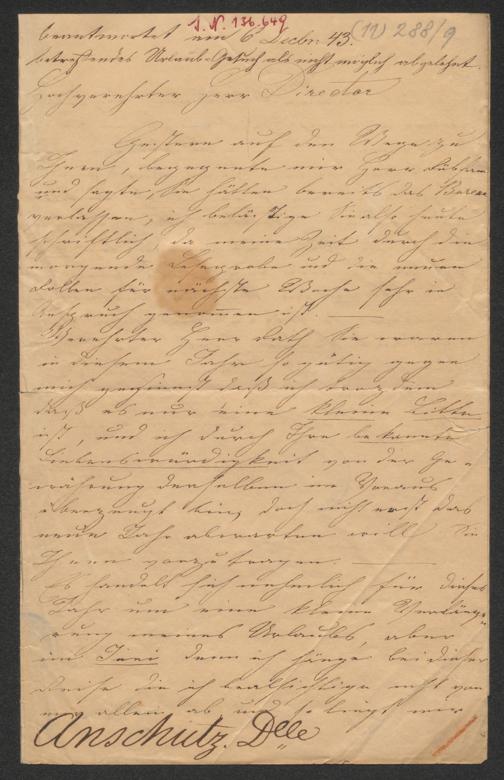 J. N. 136.649
beantwortet am 6 Decbr 43. (11) 288/9
betreffendes Urlaubs-Gesuch als nicht möglich abgelehnt.
Hochverehrter Herr Director
Gestern auf dem Wege zu
Ihnen, begegnete mir Herr
und sagte, Sie hätten bereits das Bureau
verlassen, ich belästige Sie also heute
schriftlich, da meine Zeit durch die
morgende Leseprobe und die neuen
Rollen für nächste Woche sehr in
Anspruch genommen ist. —
Verehrter Herr Rath Sie waren
in diesem Jahr so gütig gegen
mich gesinnt daß ich trotzdem
daß es nur eine kleine Bitte
ist, und ich durch Ihre bekannte
Liebenswürdigkeit von der Ge-
währung derselben im Voraus
überzeugt bin, doch nicht erst das
neue Jahr abwarten will Sie
Ihnen vorzutragen. —
Es handelt sich nehmlich für dieses
Jahr um eine kleine Verlänge-
rung meines Urlaubs, aber
im Juni denn ich hänge bei dieser
Reise die ich beabsichtige nicht von
mir allein ab und so liegt mir
Anschütz. Dlle